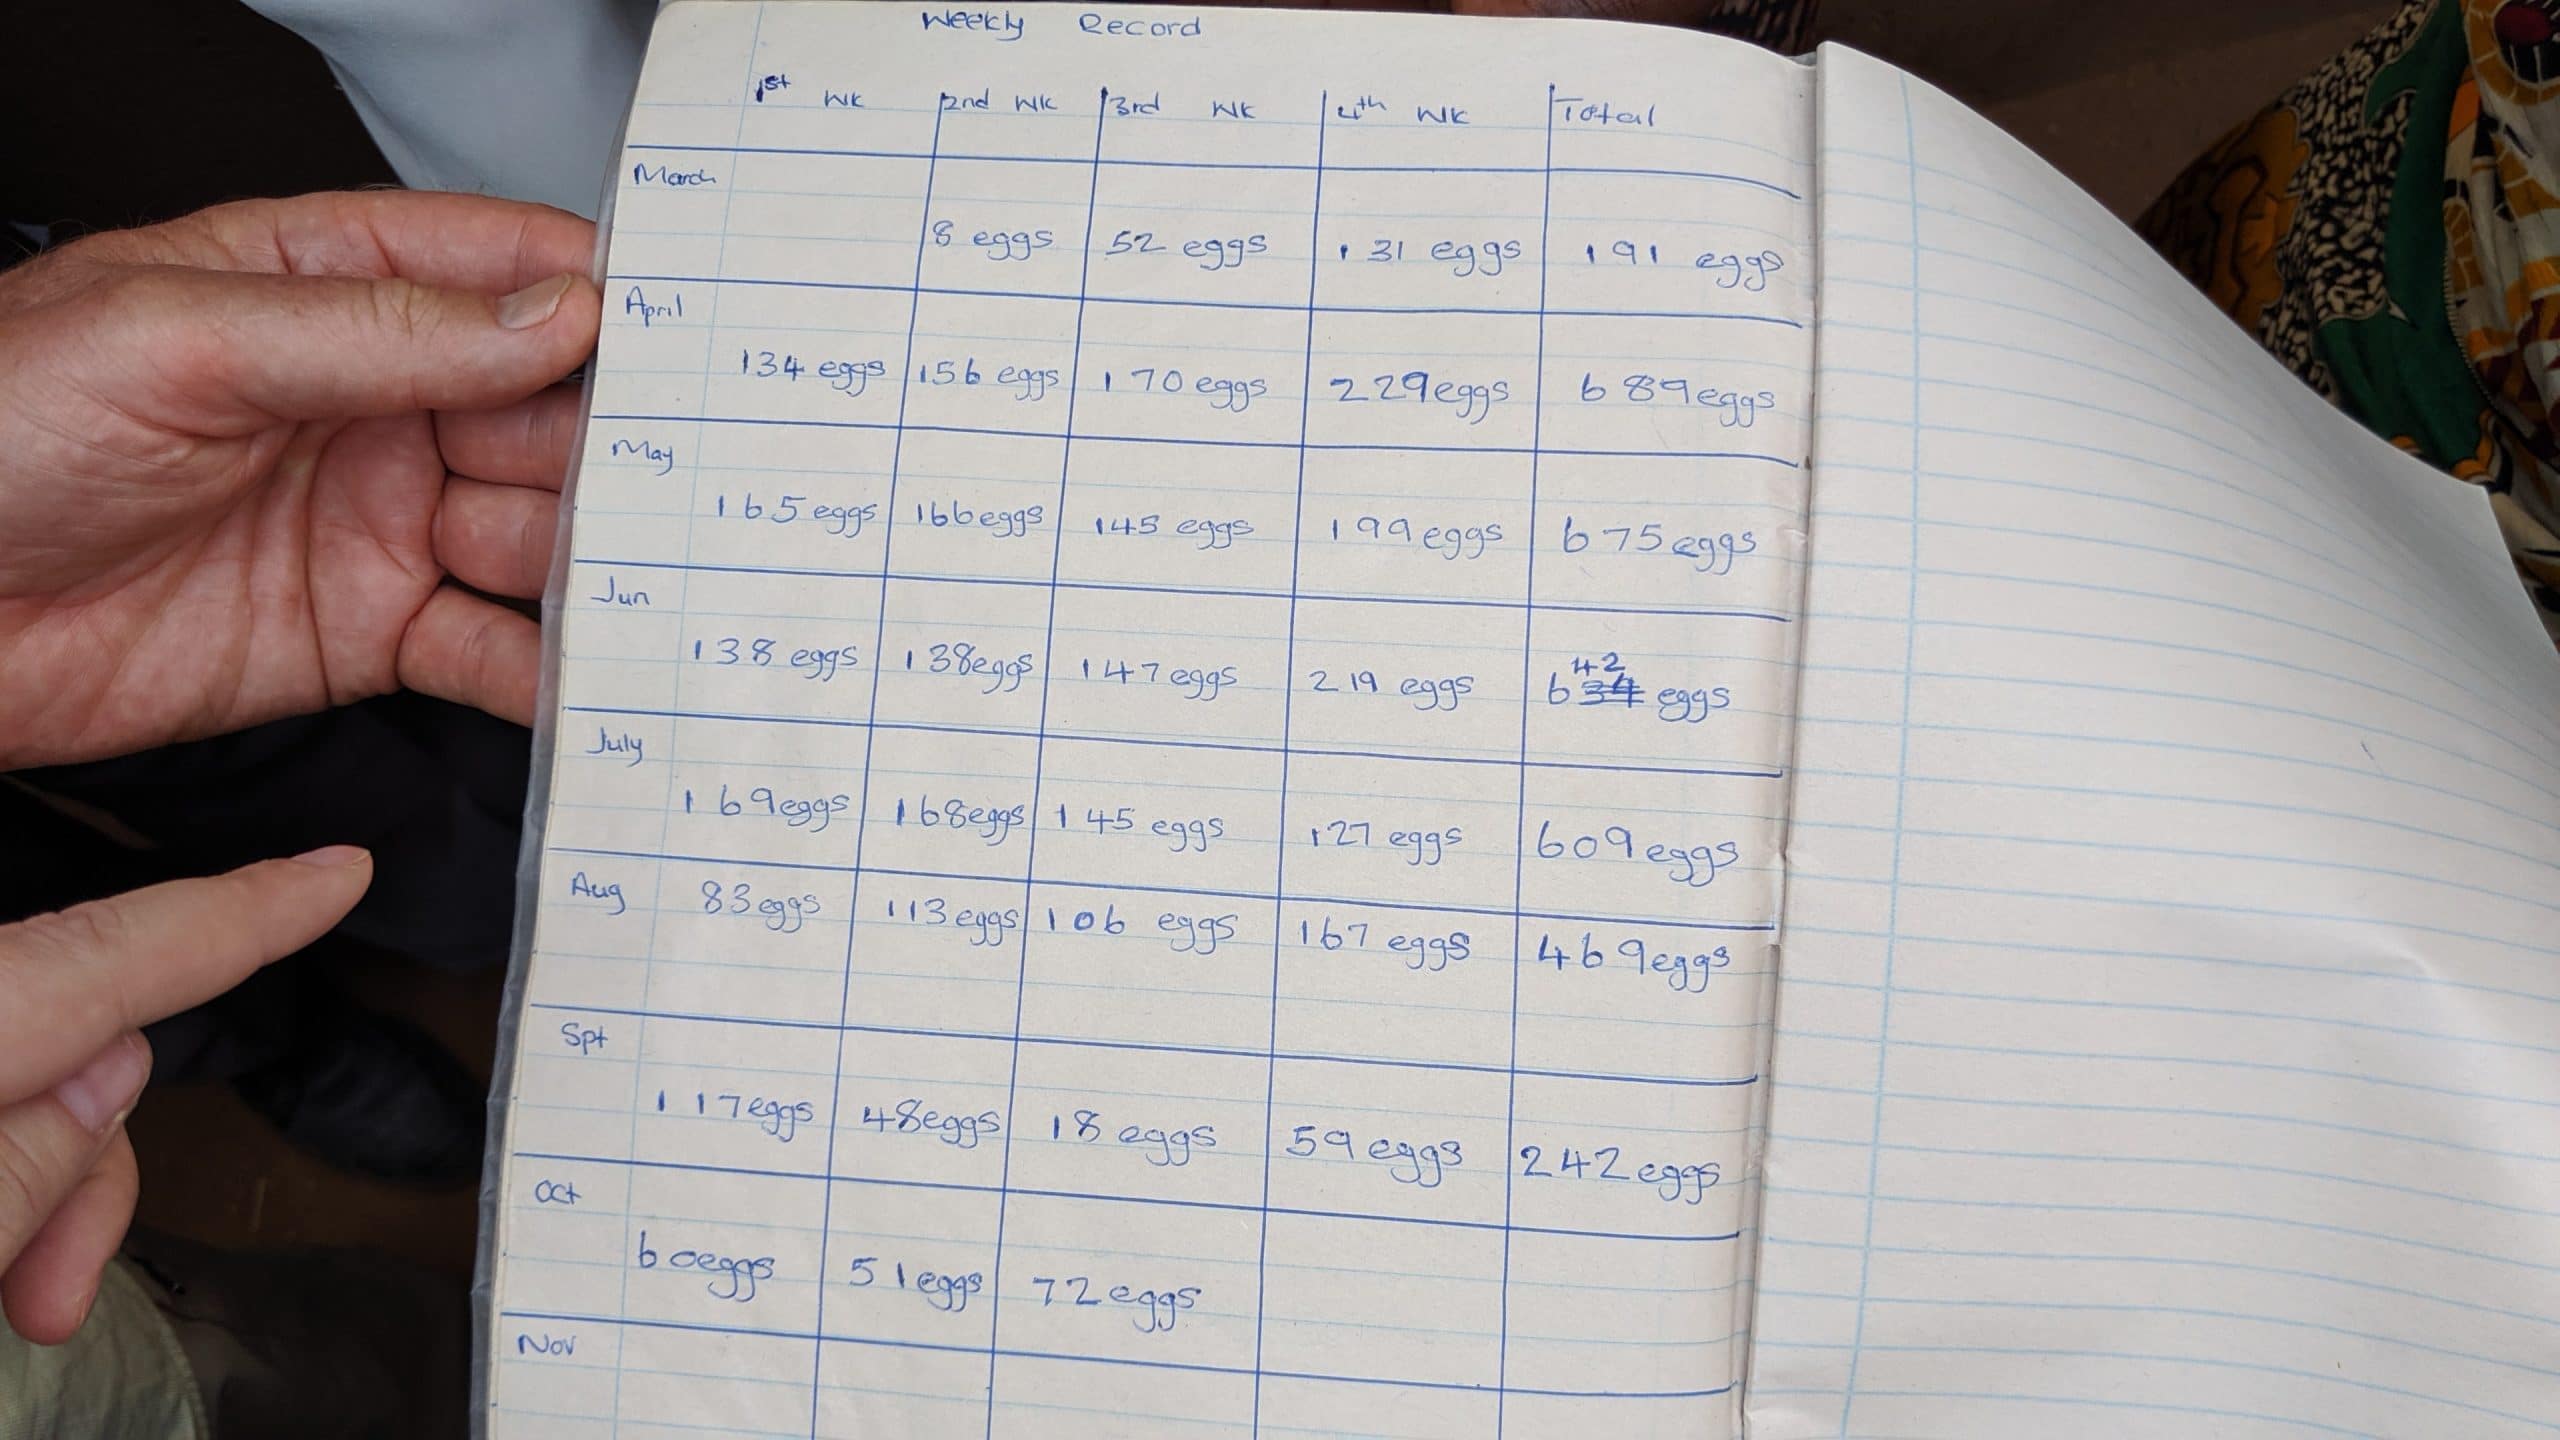 Weekly Record
1st WK 2nd WK 3rd WK 4th WK Total
March
8 eggs 52 eggs 131 eggs 191 eggs
April
134 eggs 156 eggs 170 eggs 229 eggs 689 eggs
May
165 eggs 166 eggs 145 eggs 199 eggs 675 eggs
Jun
42
138 eggs 138 eggs 147 eggs 219 eggs 634 eggs
July
169 eggs 168 eggs 145 eggs 127 eggs 609 eggs
Aug 83 eggs 113 eggs 106 eggs 167 eggs 469 eggs
Spt
117 eggs 48 eggs 18 eggs 59 eggs 242 eggs
Oct
60 eggs 51 eggs 72 eggs
Nov